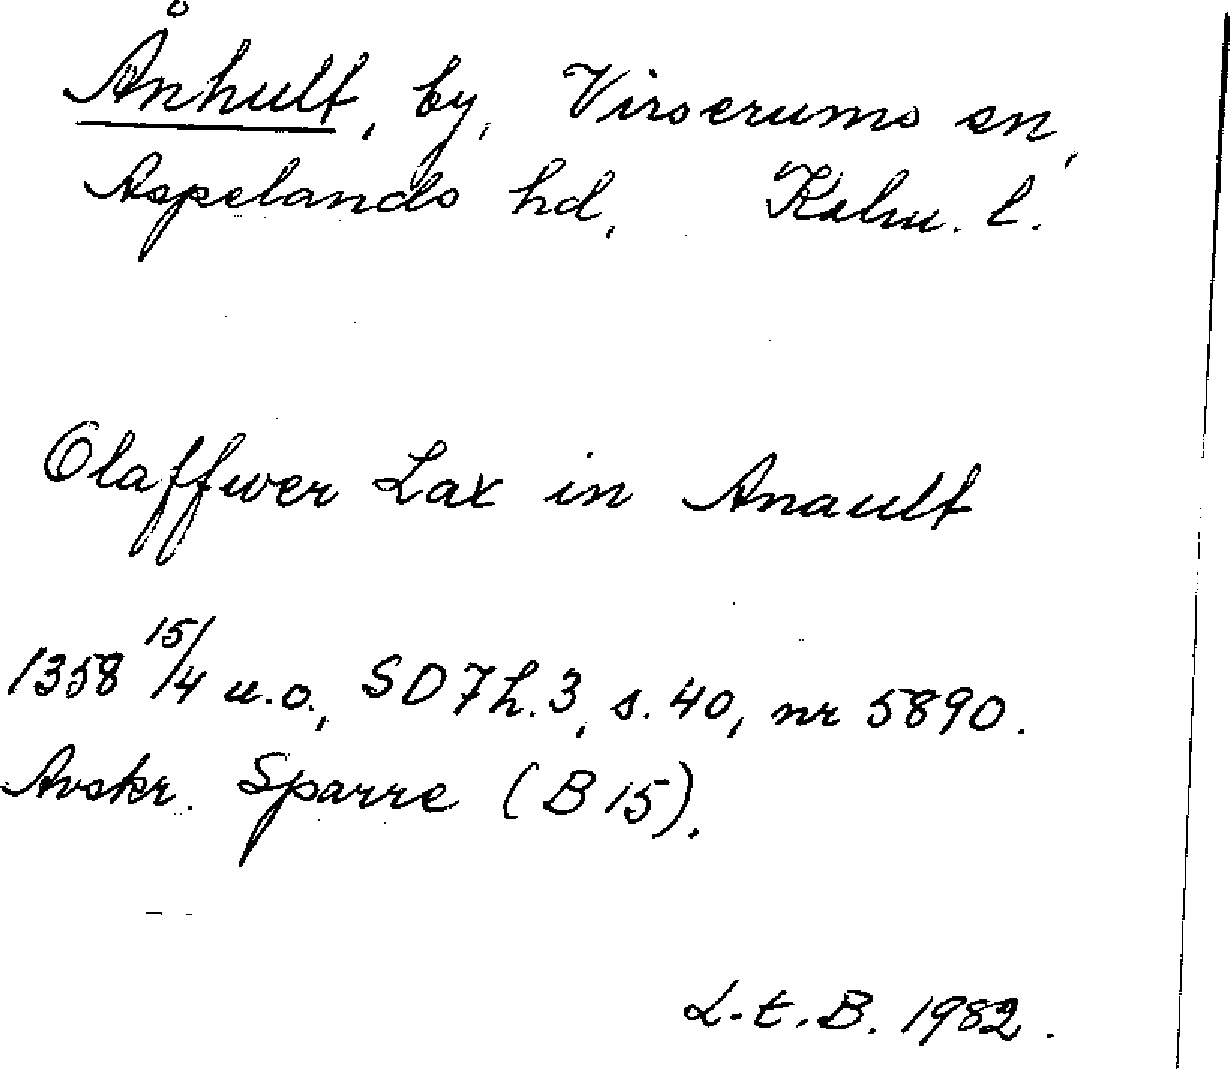 Ånhult, by, Virserums sn,
Aspelands hd, Kalm. l.
Olaffwer Lax in Anault
1358 15/4 u.o., SD 7 h. 3, s. 40, nr 5890.
Avskr. Sparre (B 15).
L.t.B. 1982.